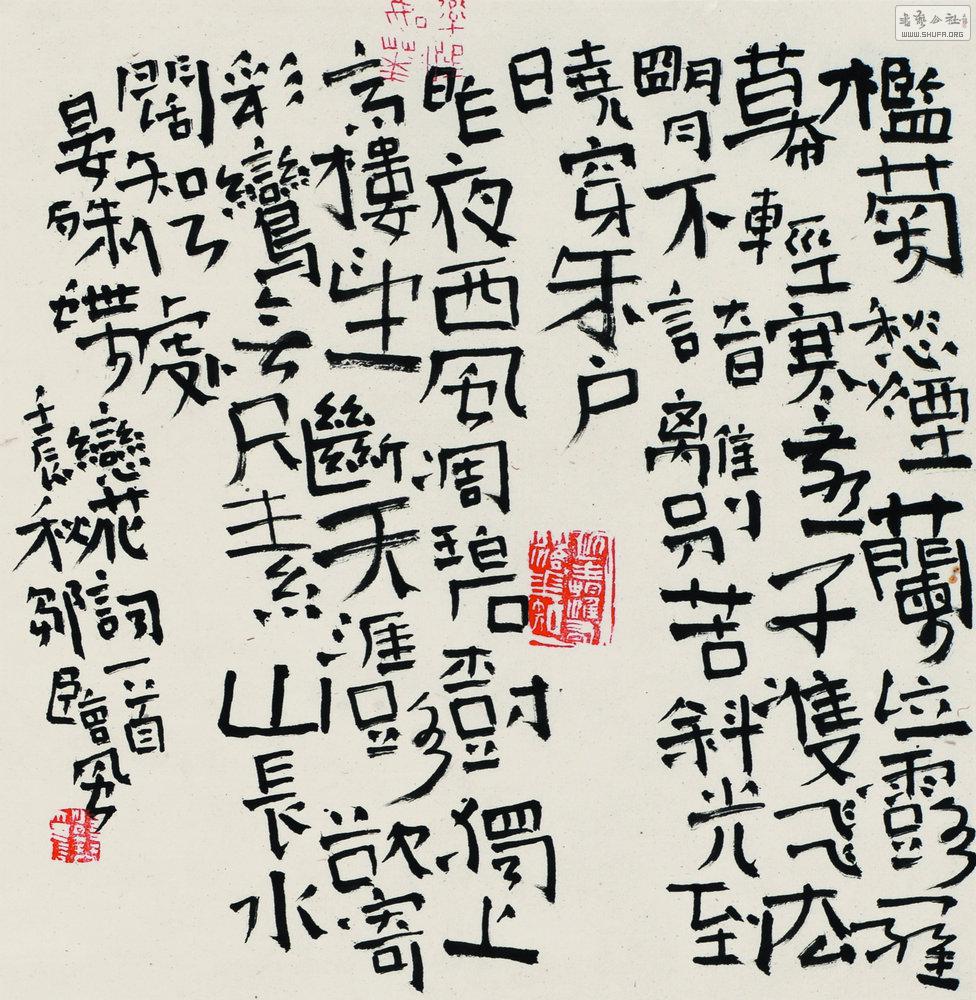 檻菊愁煙蘭泣露羅
幕輕寒燕子隻飛去
朙月不諳離別苦斜光到
曉穿朱戶
昨夜西風凋碧樹獨上
高樓望斷天涯路欲寄
彩鸞无尺素山長水
闊知何處
晏殊蝶戀花詞一首
壬辰秋鄒臨風
書藝公社
WWW.SHUFA.ORG